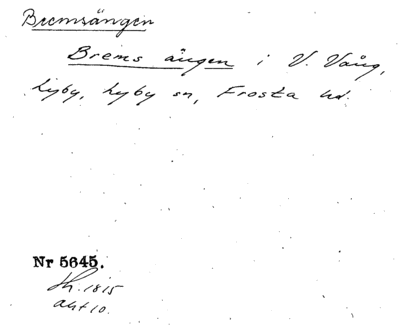 Bremsängen
Brems ängen i V. Vång,
Hyby, Hyby sn, Frosta hd.
Nr 5645.
1815
akt 10.